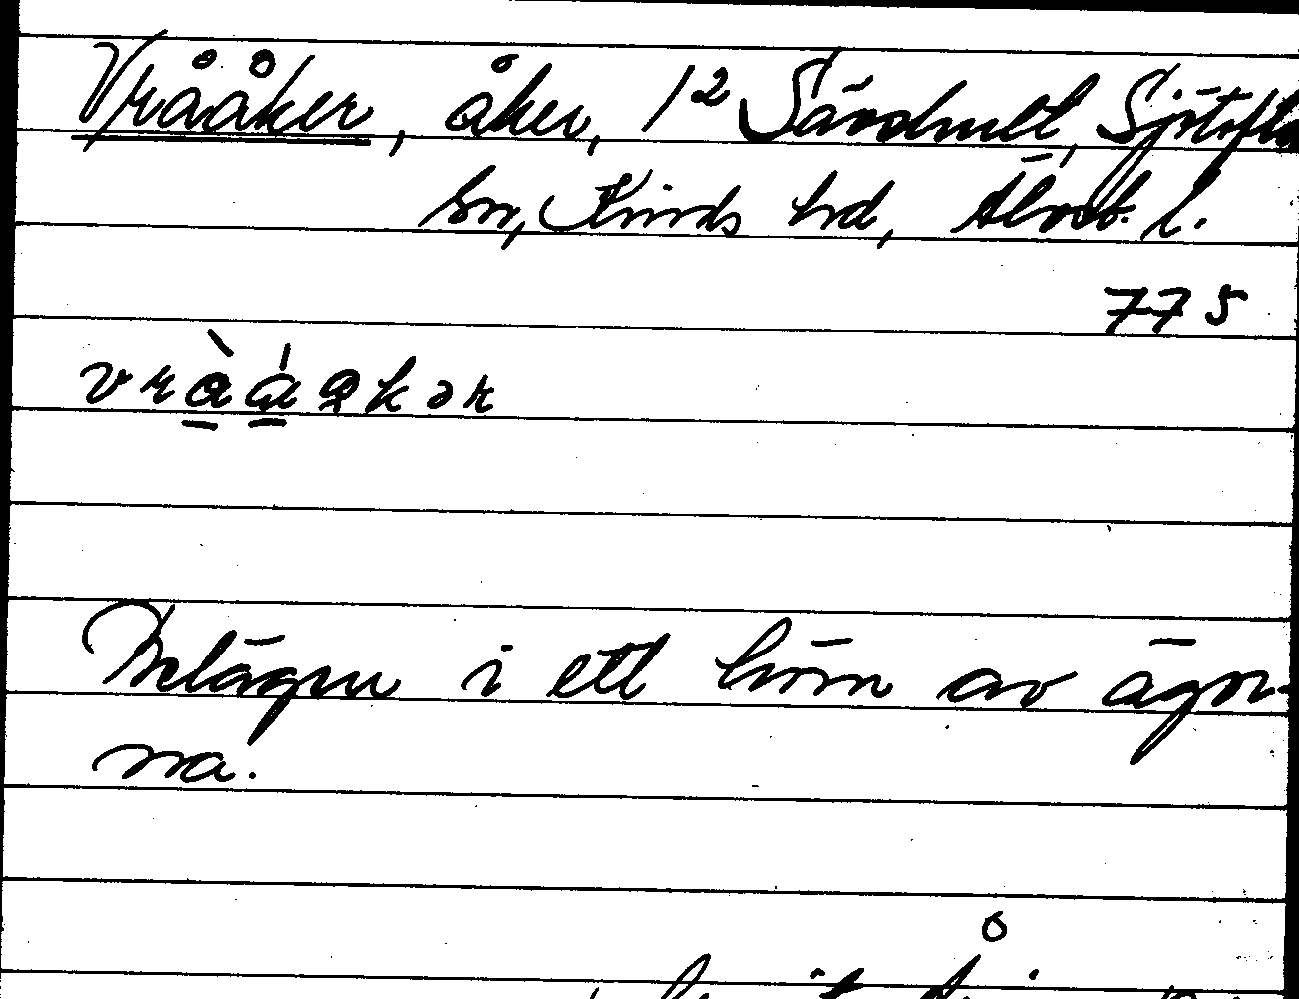 Vrååker, åker, 1² Särdmell, Sjötofta
sn, Kinds hd, Älvsb. l.
775
vràáākər
Belägen i ett hörn av ägor-
na.